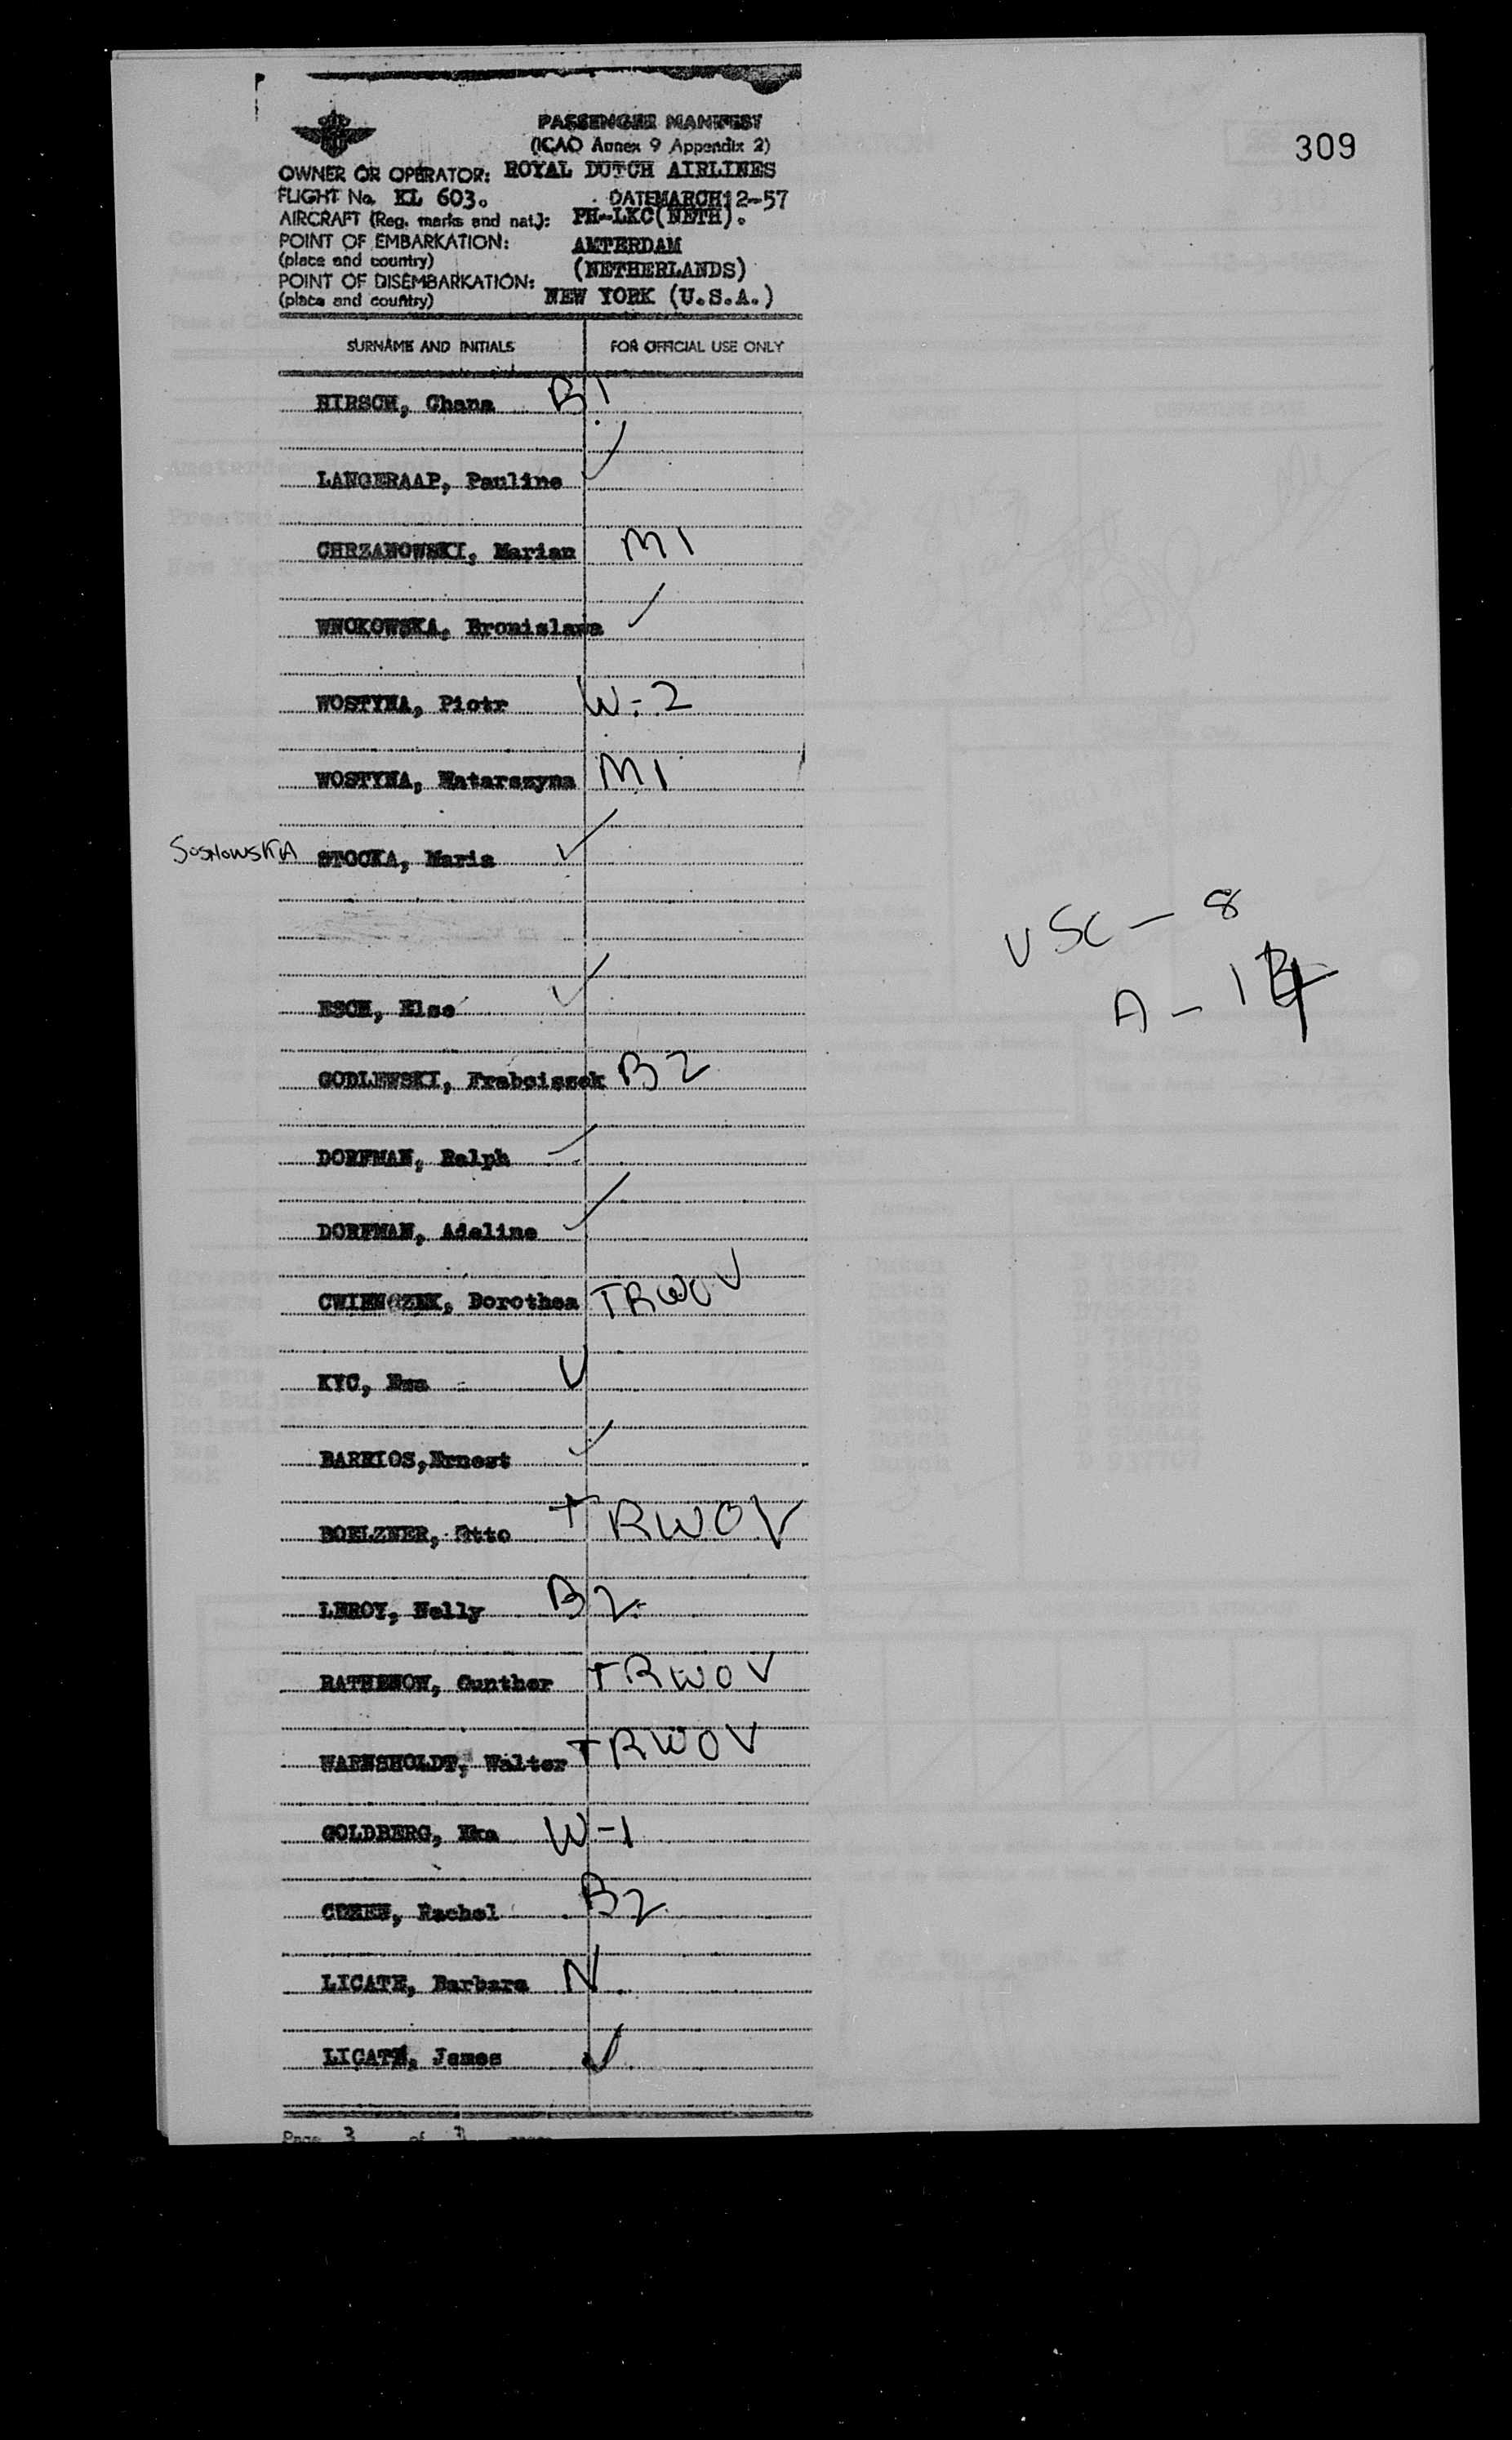 309
PASSENGER MANIFEST
(ICAO Annex 9 Appendix 2)
OWNER OR OPERATOR: ROYAL DUTCH AIRLINES
FLIGHT No. KL 603. DATE MARCH 12-57
AIRCRAFT (Reg. marks and nat.): PH-LKC(NETH).
POINT OF EMBARKATION: AMTERDAM
(place and country) (NETHERLANDS)
POINT OF DISEMBARKATION:
(place and country) NEW YORK (U.S.A.)
SURNAME AND INITIALS FOR OFFICIAL USE ONLY
HIRSCH, Chana B1
LANGERAAP, Pauline ✓
CHRZANOWSKI, Marian M1
WNOKOWSKA, Bronislawa ✓
WOSTYNA, Piotr W-2
WOSTYNA, Katarszyna M1
SOSNOWSKA STOCKA, Maria ✓
USC - 8
A - 1
ESCH, Else ✓
GODLEWSKI, Frabciszek B2
DORFMAN, Ralph ✓
DORFMAN, Adeline ✓
CWIENCZEK, Dorothea TRWOV
KYC, Ewa V
BARRIOS,Ernest ✓
BOELZNER, Otto TRWOV
LEROY, Nelly B2
RATHENOW, Gunther TRWOV
WARNSHOLDT, Walter TRWOV
GOLDBERG, W-1
Rachel B2
LICATE, Barbara N
LICATE, James ✓
Page 3 of 3